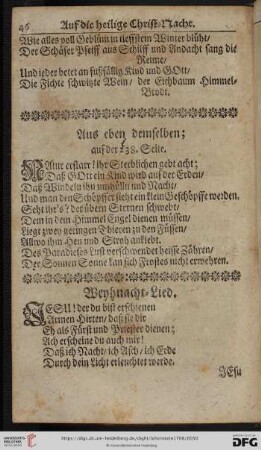 46 Auf die heilige Christ-Nacht.
Wie alles voll Geblüm im tieffstem Winter blüht/
Der Schäfer Pfeiff aus Schilff und Andacht sang die
Reime/
Und jeder betet an fußfällig Kind und GOtt/
Die Fichte schwitzte Wein/ der Eichbaum Himmel-
Brodt.
Aus eben demselben;
auf der 238. Seite.
NAtur erstarr! ihr Sterblichen gebt acht;
Daß GOtt ein Kind wird auf der Erden/
Daß Windeln ihn umhülln und Nacht/
Und man den Schöpffer sieht ein klein Geschöpffe werden.
Seht ihr's? der übern Sternen schwebt/
Dem in dem Himmel Engel dienen müssen/
Liegt zwey geringen Thieren zu den Füssen/
Allwo ihm Heu und Stroh anklebt.
Des Paradieses Lust verschwendet heisse Zähren/
Der Sonnen Sonne kan sich Frostes nicht erwehren.
Weyhnacht-Lied.
JESU! der du bist erschienen
Armen Hirten/ daß sie dir
Eh als Fürst und Priester dienen;
Ach erscheine du auch mir!
Daß ich Nacht/ ich Asch/ ich Erde
Durch dein Licht erleuchtet werde.
JEsu
http://digi.ub.uni-heidelberg.de/diglit/lohenstein1708/0592
© Universitätsbibliothek Heidelberg